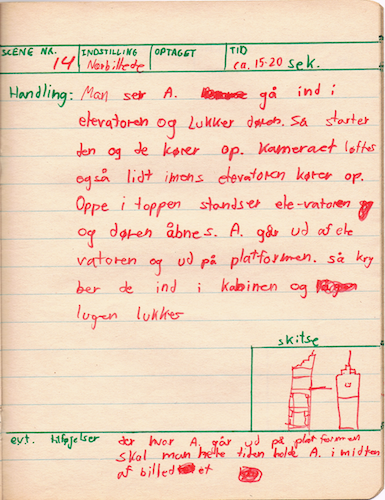 SCENE NR. 14
INDSTILLING Nærbillede
OPTAGET
TID ca. 15-20 sek.
Handling: Man ser A. gå ind i
elevatoren og lukker døren. Så starter
den og de kører op. Kameraet løftes
også lidt imens elevatoren kører op.
Oppe i toppen standser ele-vatoren
og døren åbnes. A. går ud af ele
vatoren og ud på platformen. så kry
ber de ind i kabinen og
lugen lukker
skitse
evt. tilføjelser der hvor A. går ud på platformen
skal man hele tiden holde A. i midten
af billedet